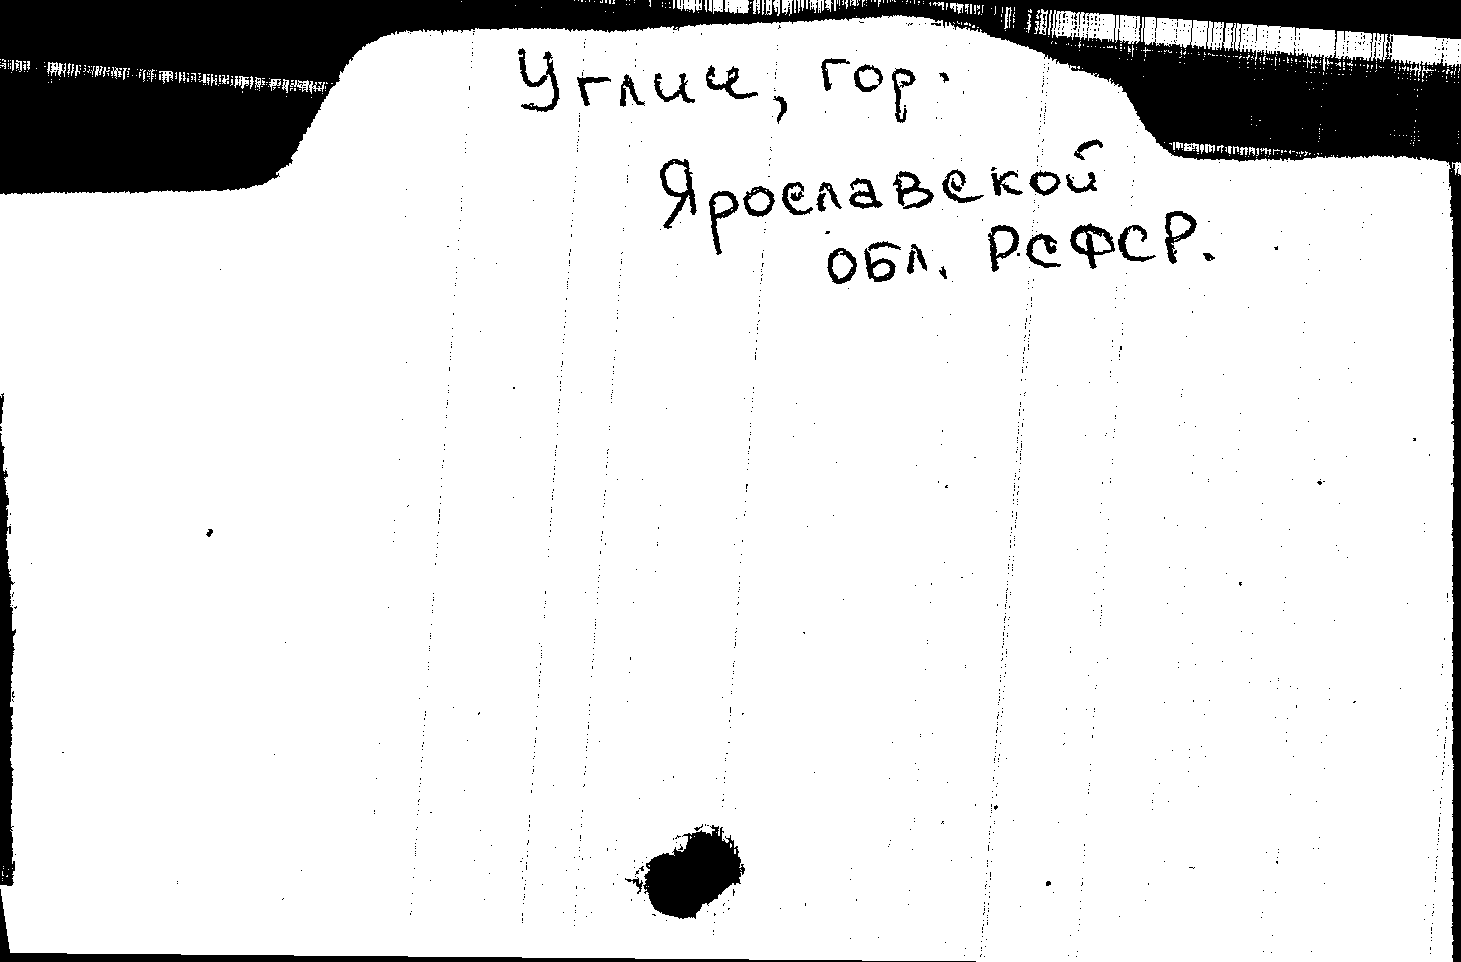 Углич, гор.
Ярославской
обл. РСФСР.